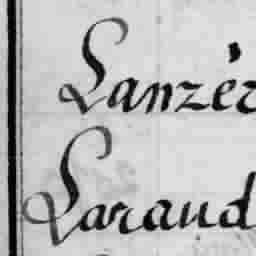 Lanzér
Laraud